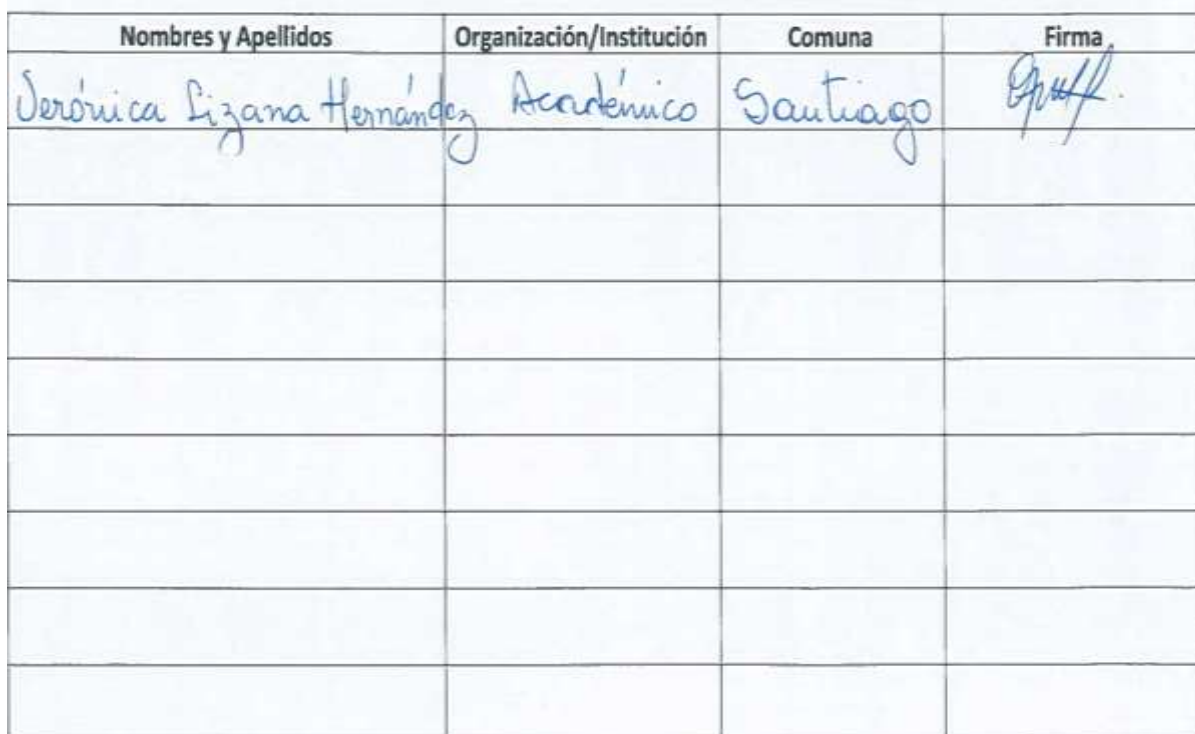 Nombres y Apellidos Organización/Institución Comuna Firma
Verónica Lizana Hernández Académico Santiago